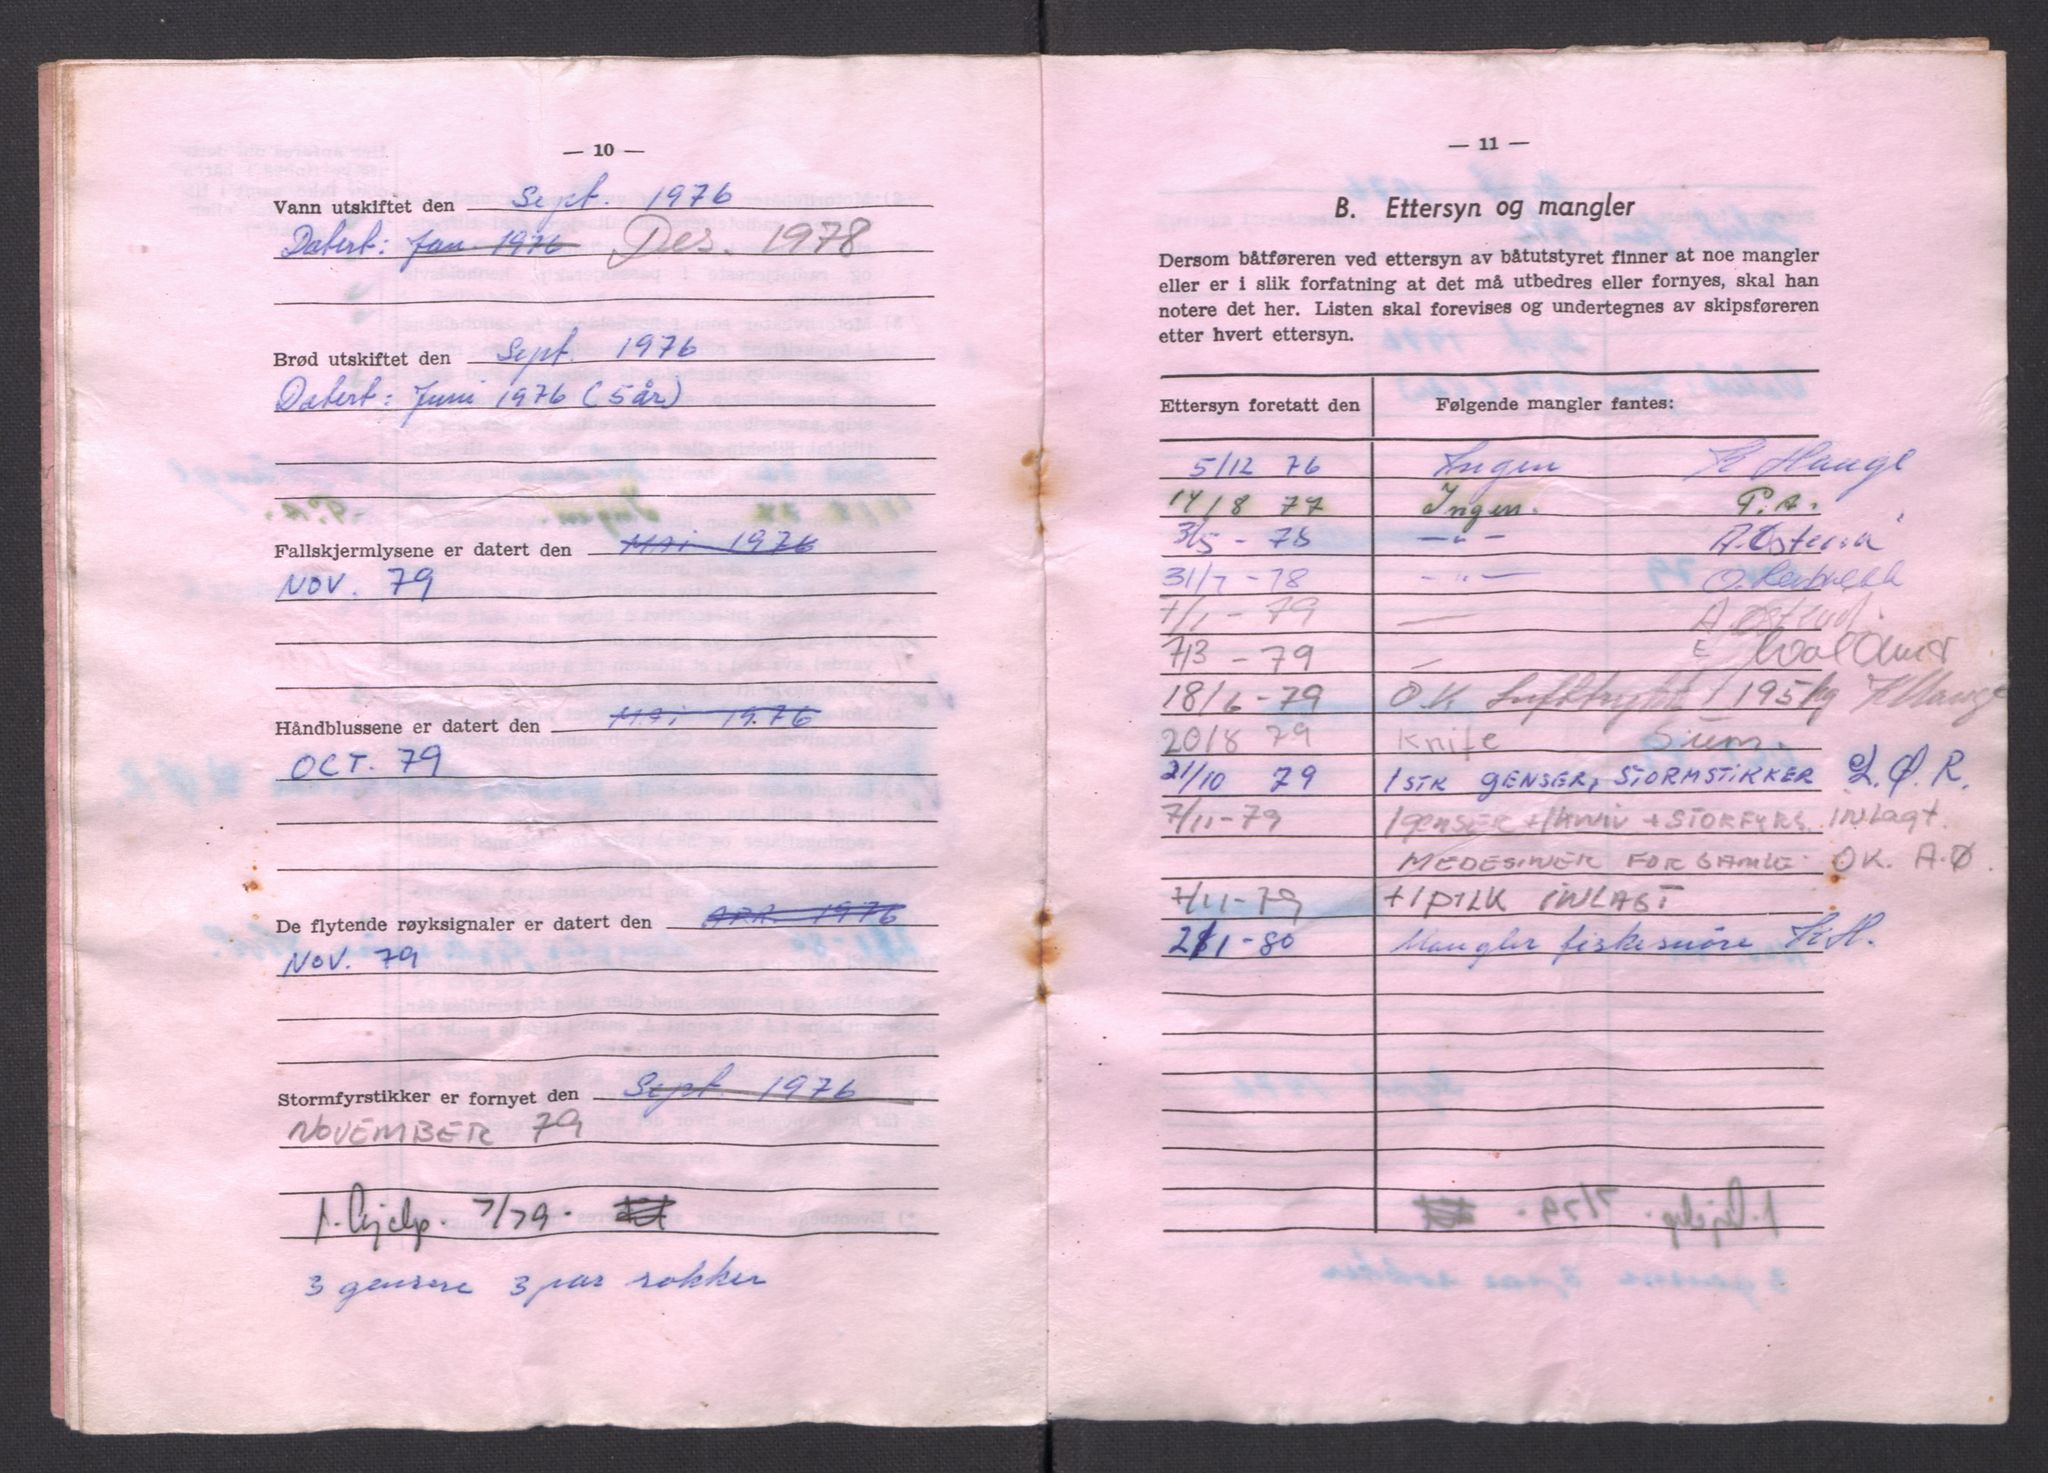 — 10 —
Vann utskiftet den Sept. 1976
Datert: Jan. 1976 Des. 1978
Brød utskiftet den Sept. 1976
Datert: Juni 1976 (5 år)
Fallskjermlysene er datert den MAI 1976
NOV. 79
Håndblussene er datert den MAI 1976
OCT. 79
De flytende røyksignaler er datert den APR. 1976
NOV. 79
Stormfyrstikker er fornyet den Sept. 1976
NOVEMBER 79
1. hjelp. 7/79.
3 gensere 3 par sokker
— 11 —
B. Ettersyn og mangler
Dersom båtføreren ved ettersyn av båtutstyret finner at noe mangler
eller er i slik forfatning at det må utbedres eller fornyes, skal han
notere det her. Listen skal forevises og undertegnes av skipsføreren
etter hvert ettersyn.
Ettersyn foretatt den Følgende mangler fantes:
5/12 76 Ingen K Hauge
14/8 77 Ingen. P.A.
3/5 - 78 — " —
31/7 - 78 — " —
7/1 - 79 —
7/3 - 79 — E
18/6 - 79 O.K Lufttrykk 195 kg K Hauge
20/8 79 Knife
21/10 79 1 STK GENSER, STORMSTIKKER L.Ø.R.
7/11-79 1 GENSER + 1 KNIV + STORFYRS. INLAGT.
MEDESINER FOR GAMLE. OK. A.Ø
7/11-79 + 1 PILK INLAGT
21/1-80 Mangler fiskesnøre K.H.